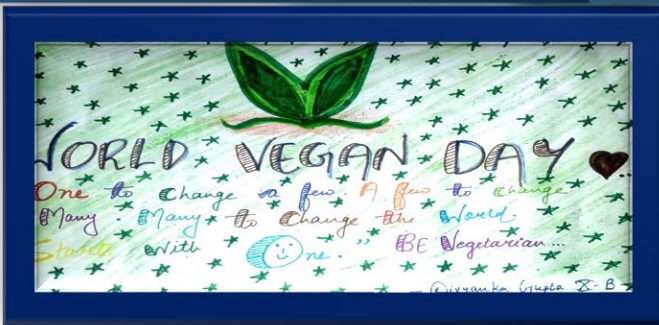 WORLD VEGAN DAY
One to change a few. A few to change
Many. Many to Change the World.
Starts with One." BE Vegetarian...
Divyanka Gupta X-B